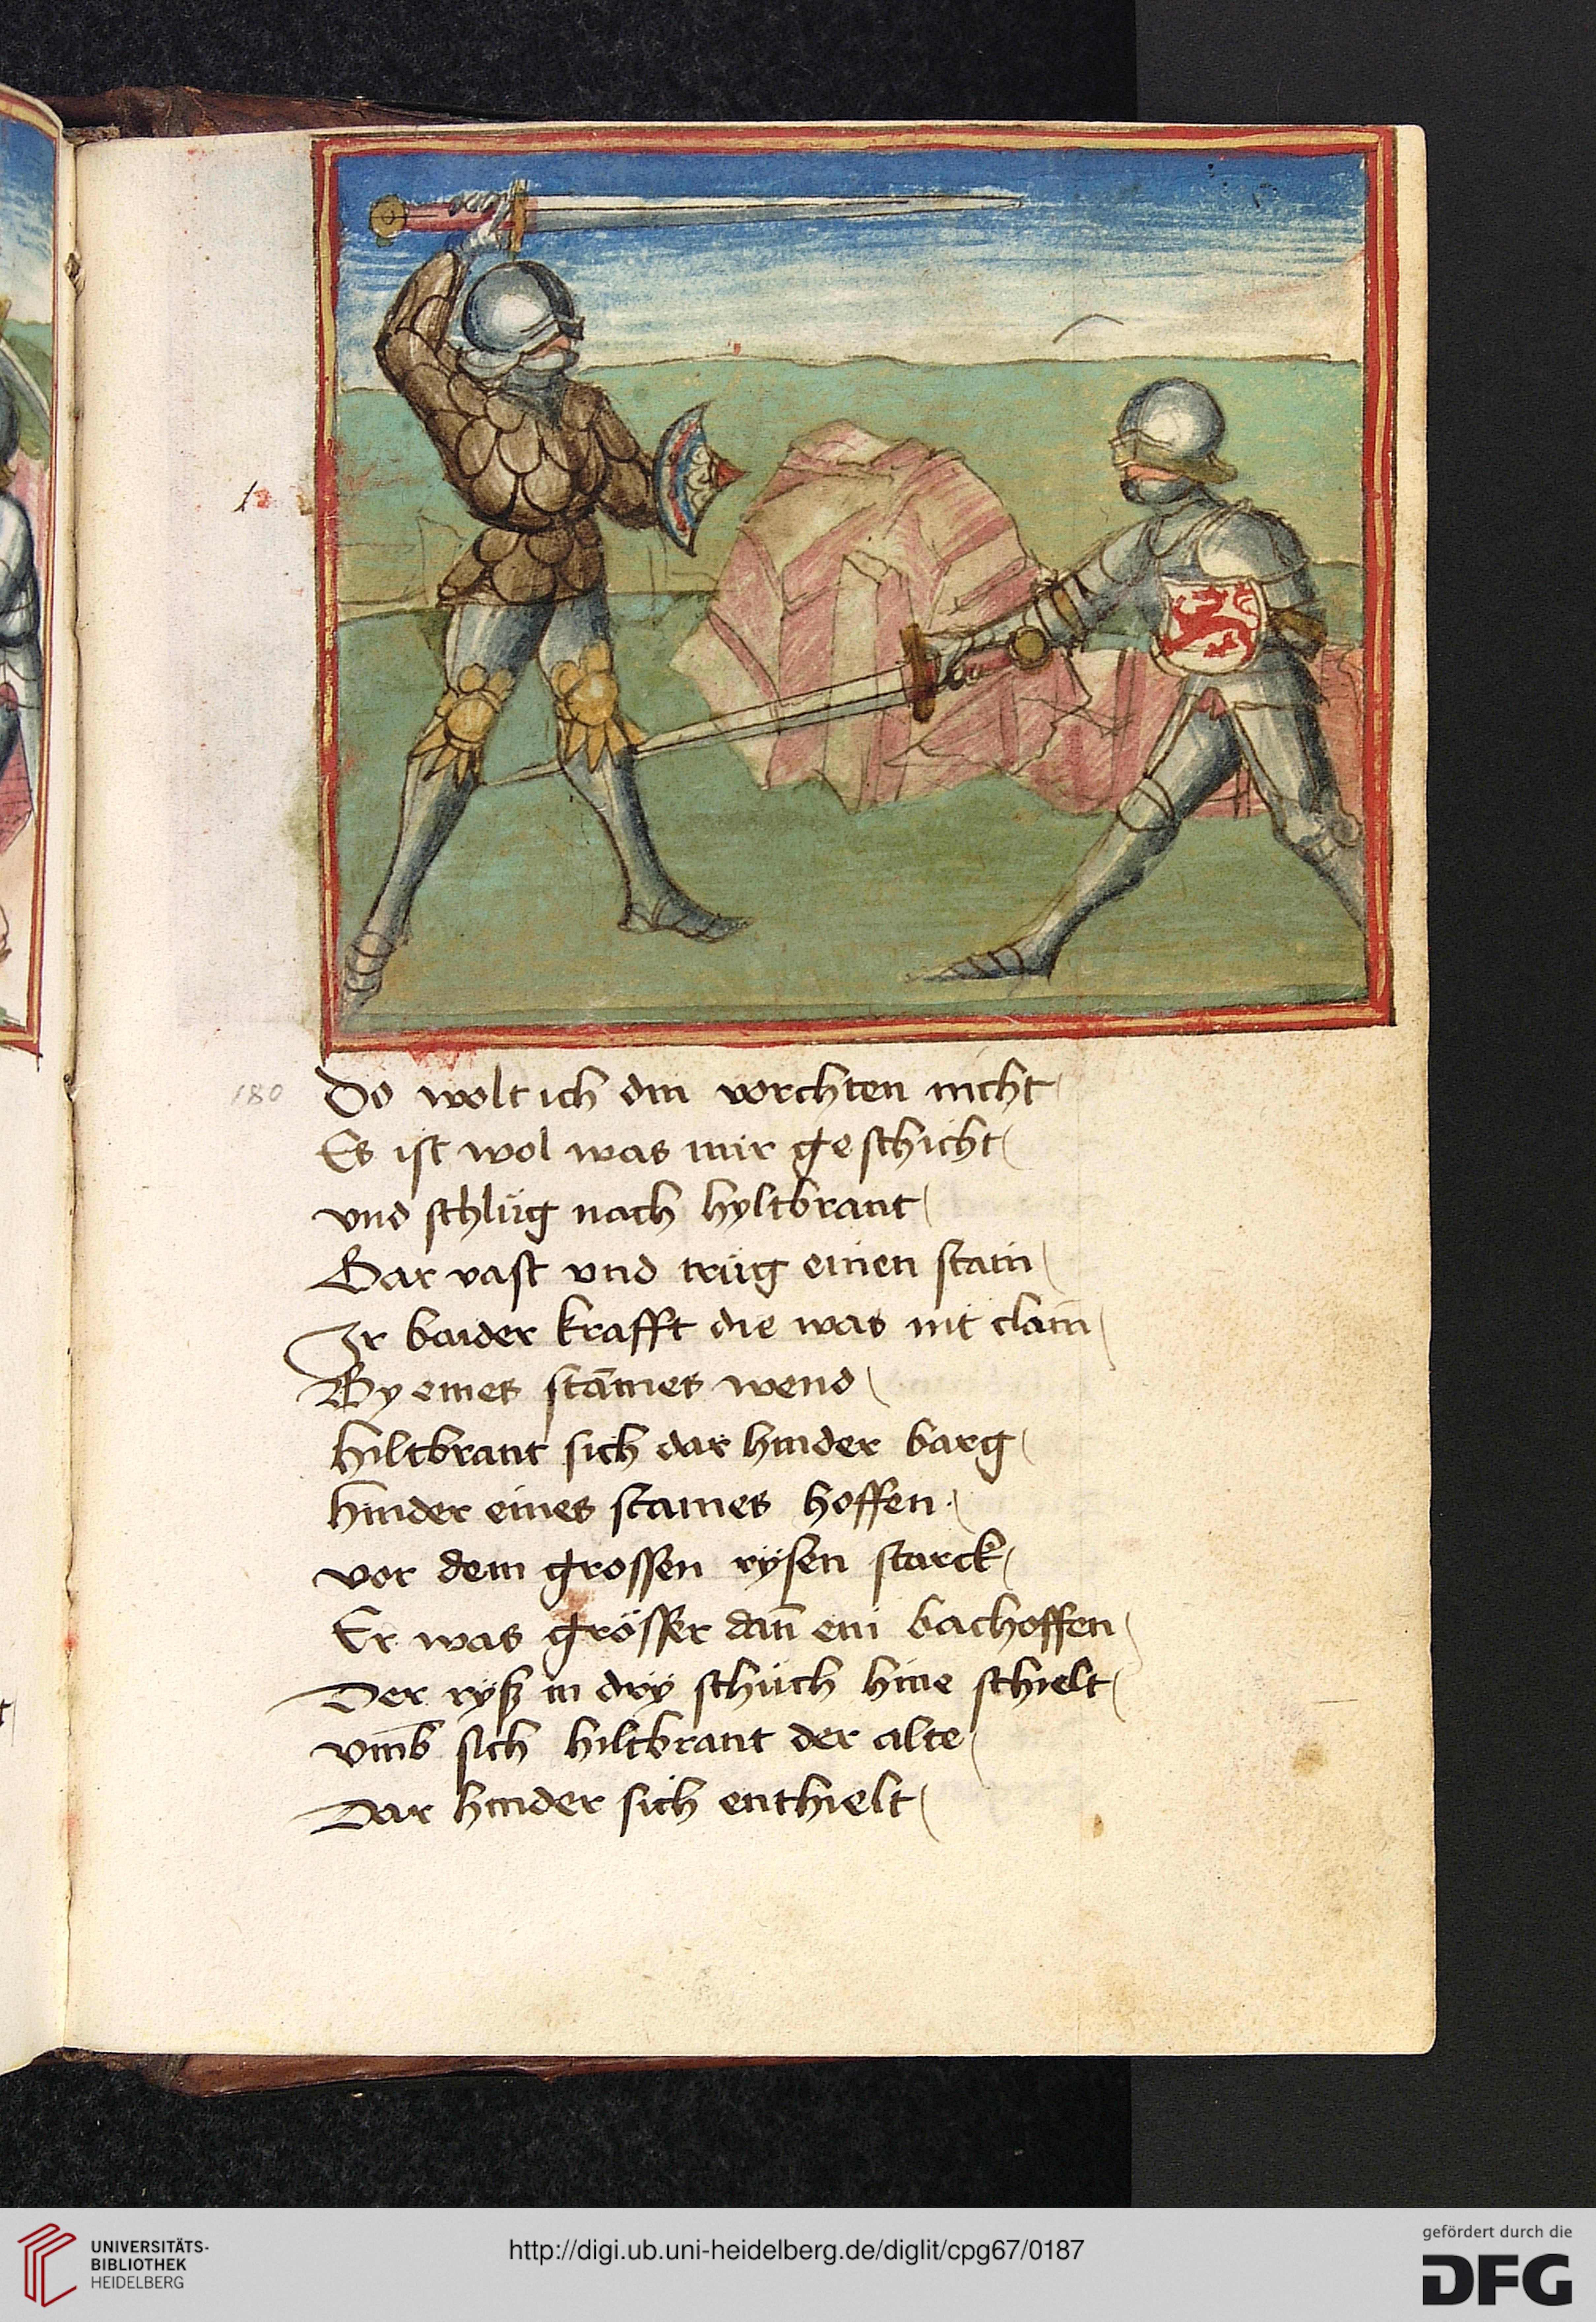 180
Do wolt ich din vorchten nicht
Es ist wol was mir geschicht
vnd schlüg nach hyltbrant
Gar vast vnd trüg einen stain
Ir baider krafft die was nit clain
By eines stāmes wend
hiltbrant sich dar hinder barg
hinder eines staines hoffen
vor dem grossen rysen starck
Er was grösser dan̄ ein bachoffen
Der ryß in dry schüch hine schielt
vmb sich hiltbrant der alte
Dar hinder sich enthielt
UNIVERSITÄTS-
BIBLIOTHEK
HEIDELBERG
http://digi.ub.uni-heidelberg.de/diglit/cpg67/0187
gefördert durch die
DFG